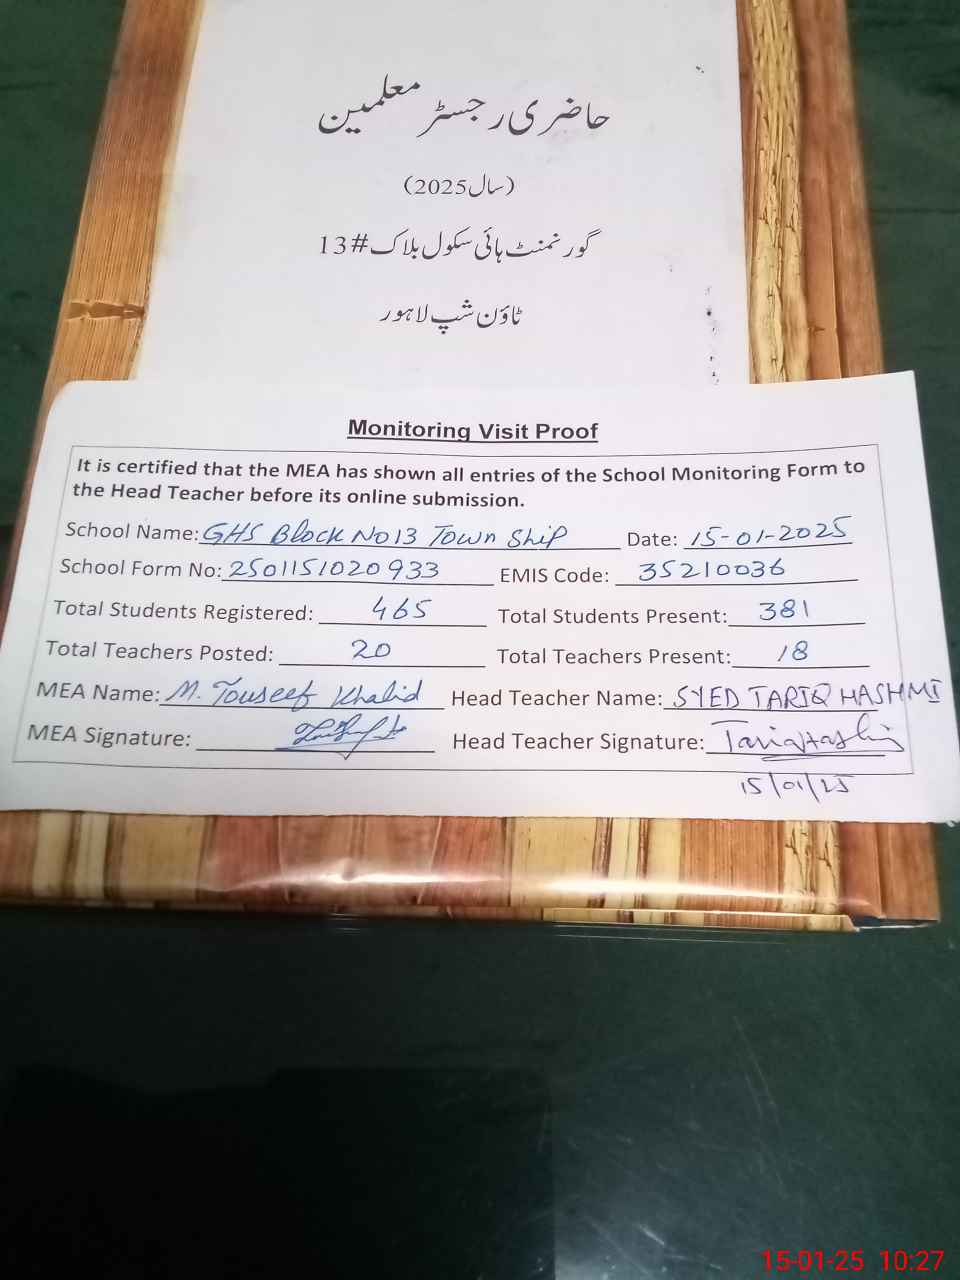 حاضری رجسٹر معلمین
(سال 2025)
گورنمنٹ ہائی سکول بلاک #13
ٹاؤن شپ لاہور
Monitoring Visit Proof
It is certified that the MEA has shown all entries of the School Monitoring Form to
the Head Teacher before its online submission.
School Name: GHS Block No 13 Town Ship Date: 15-01-2025
School Form No: 2501151020933 EMIS Code: 35210036
Total Students Registered: 465 Total Students Present: 381
Total Teachers Posted: 20 Total Teachers Present: 18
MEA Name: M. Touseef Khalid Head Teacher Name: SYED TARIQ HASHMI
MEA Signature: Head Teacher Signature: Tariq Hashmi
15/01/25
15-01-25 10:27